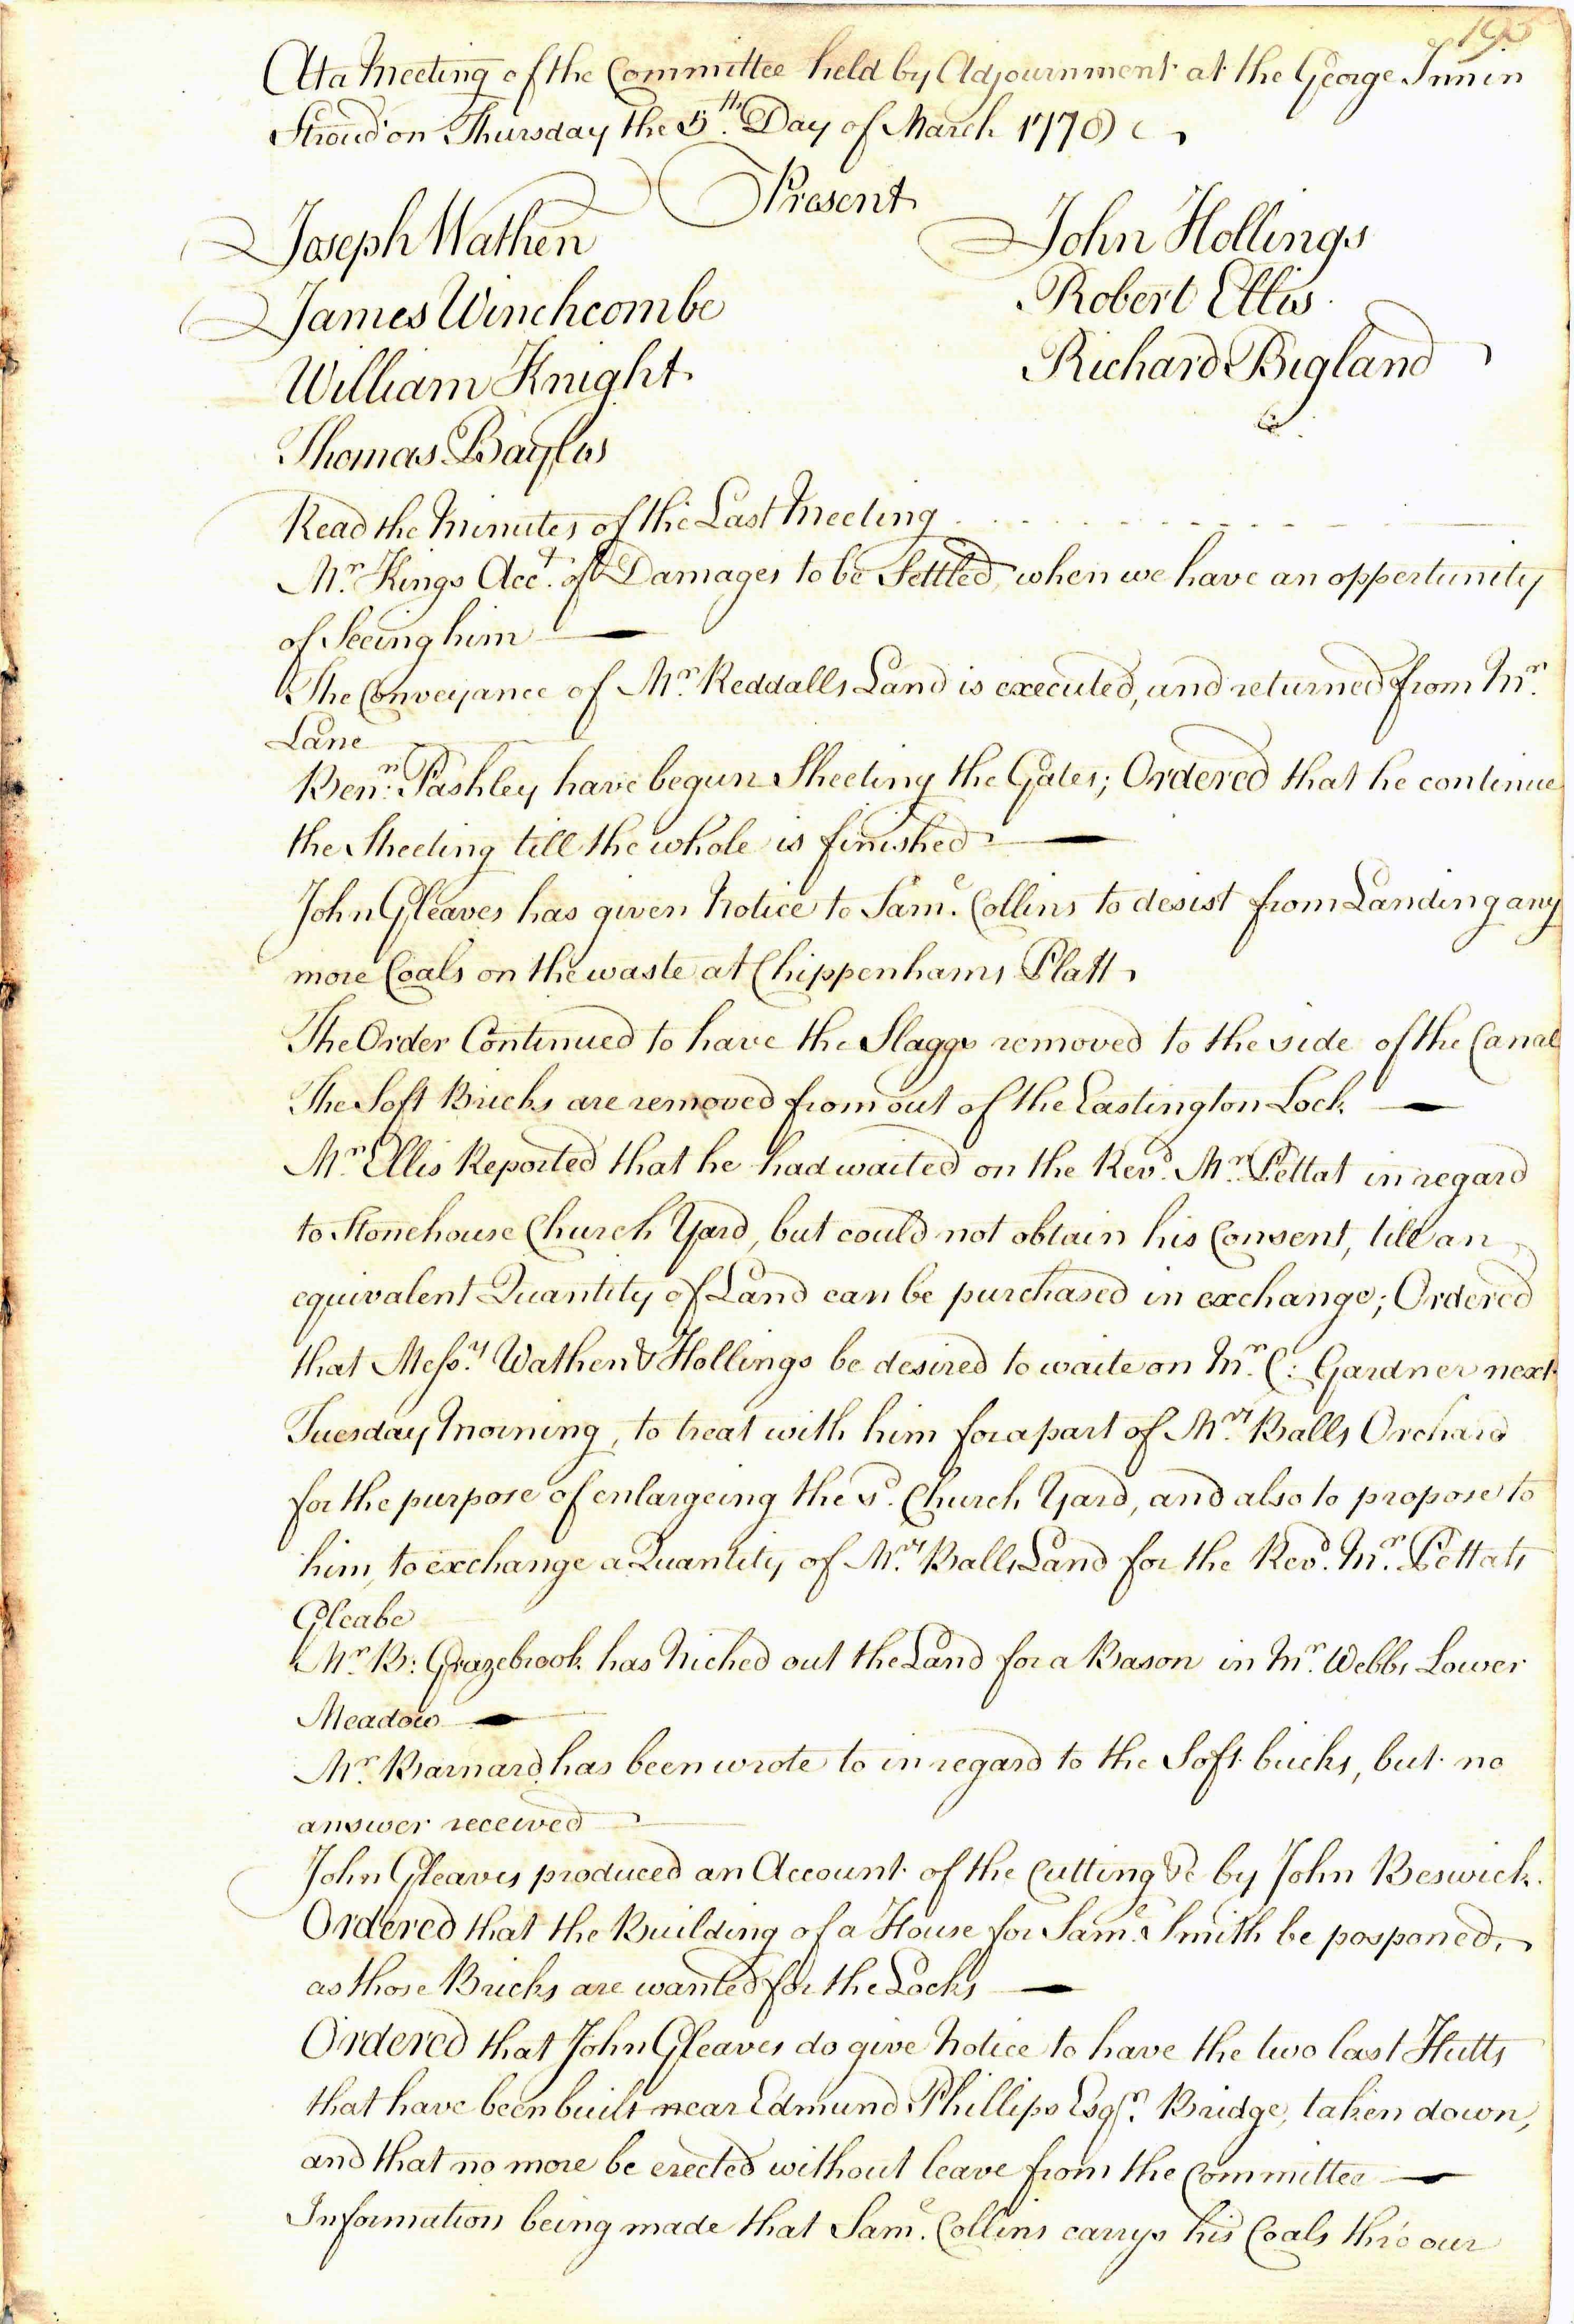 195
At a Meeting of the Committee held by Adjournment at the George Inn in
Stroud on Thursday the 5th. Day of March 1778
Present
Joseph Wathen
John Hollings
James Winchcombe
Robert Ellis
William Knight
Richard Bigland
Thomas Baylis
Read the Minutes of the Last Meeting
Mr. Kings Acct. of Damages to be Settled, when we have an oppertunity
of Seeing him
The Conveyance of Mr. Reddalls Land is executed, and returned from Mr.
Lane
Benn. Pashley have begun Sheeting the Gates; Ordered that he continue
the Sheeting till the whole is finished
John Gleaves has given Notice to Saml. Collins to desist from Landing any
more Coals on the waste at Chippenhams Platt
The Order Continued to have the Slaggs removed to the side of the Canal
The Soft Bricks are removed from out of the Eastington Lock
Mr. Ellis Reported that he had waited on the Revd. Mr. Pettat in regard
to Stonehouse Church Yard, but could not obtain his Consent, till an
equivalent Quantity of Land can be purchased in exchange; Ordered
that Messrs. Wathen & Hollings be desired to waite on Mr. C: Gardner next
Tuesday Morning, to treat with him for a part of Mrs. Balls Orchard
for the purpose of enlargeing the sd. Church Yard, and also to propose to
him, to exchange a Quantity of Mrs. Balls Land for the Revd. Mr. Pettats
Gleabe
Mr. B: Grazebrook has Niched out the Land for a Bason in Mr. Webbs Lower
Meadow
Mr. Barnard has been wrote to in regard to the Soft bricks, but no
answer received
John Gleaves produced an Account of the Cutting &c by John Beswick.
Ordered that the Building of a House for Saml. Smith be posponed,
as those Bricks are wanted for the Locks
Ordered that John Gleaves do give Notice to have the two last Hutts
that have been built near Edmund Phillips Esqr. Bridge, taken down,
and that no more be erected without leave from the Committee
Information being made that Saml. Collins carrys his Coals thro' our